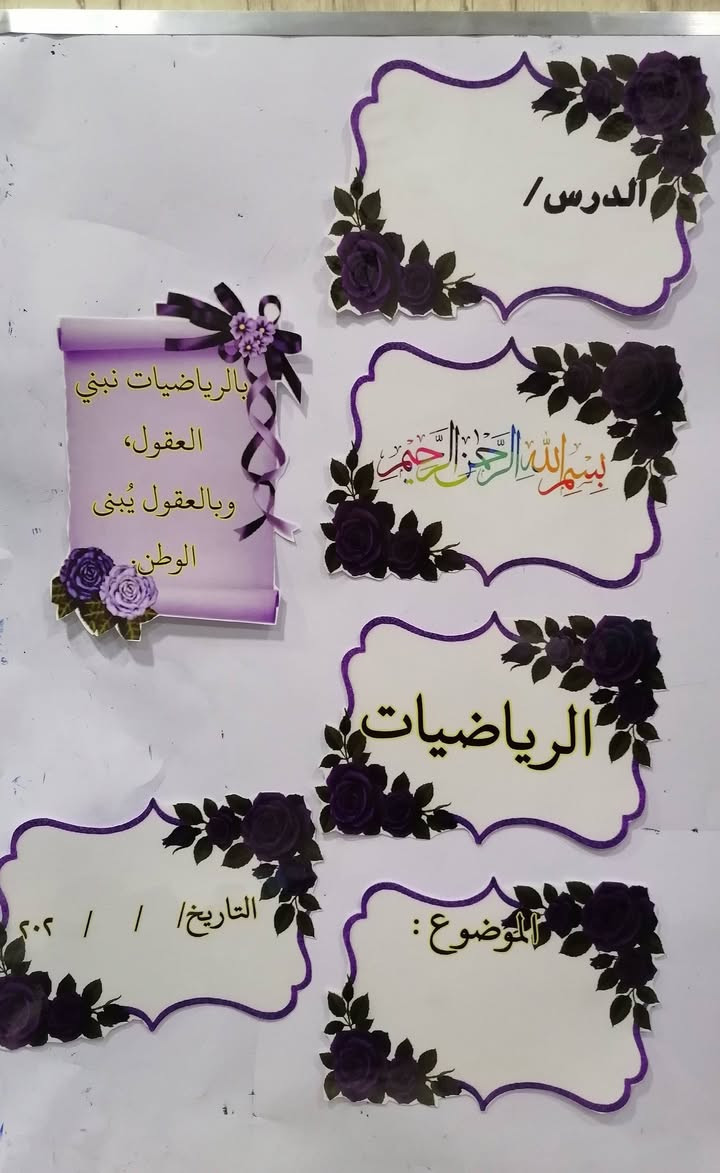 الدرس/
بِسْمِ اللهِ الرَّحْمٰنِ الرَّحِيمِ
بالرياضيات نبني
العقول،
وبالعقول يُبنى
الوطن.
الرياضيات
التاريخ/ / / ٢٠٢
الموضوع :